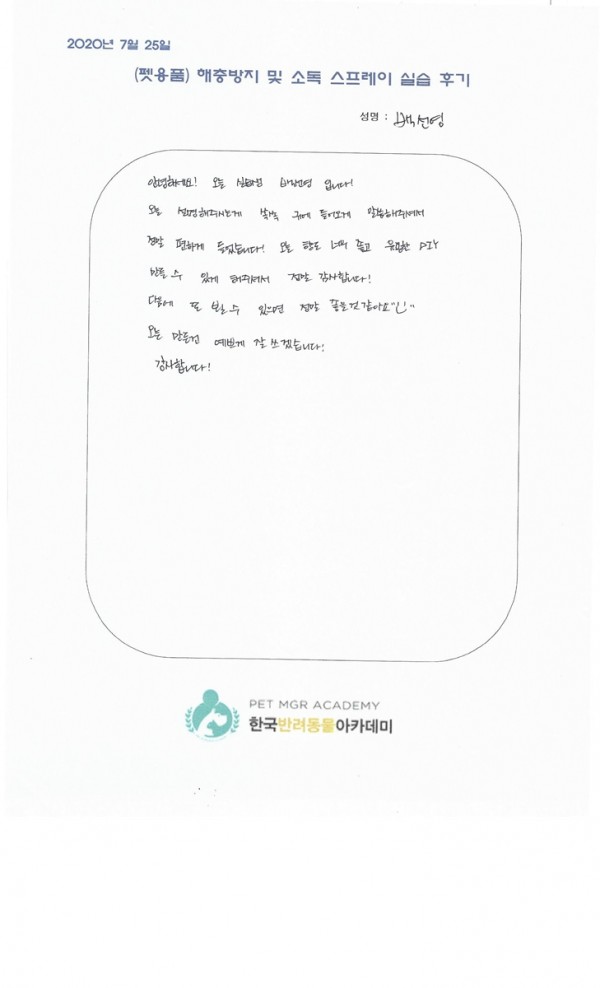 2020년 7월 25일
(펫용품) 해충방지 및 소독 스프레이 실습 후기
성명 : 백선영
안녕하세요! 오늘 실습생 백선영 입니다!
오늘 설명해주시는게 쏙쏙 귀에 들어오게 말씀해주셔서
정말 편하게 들었습니다! 오늘 향도 너무 좋고 유익한 DIY
만들 수 있게 해주셔서 정말 감사합니다!
다음에 또 뵐 수 있으면 정말 좋을것같아요
오늘 만든건 예쁘게 잘 쓰겠습니다!
감사합니다!
PET MGR ACADEMY
한국반려동물아카데미